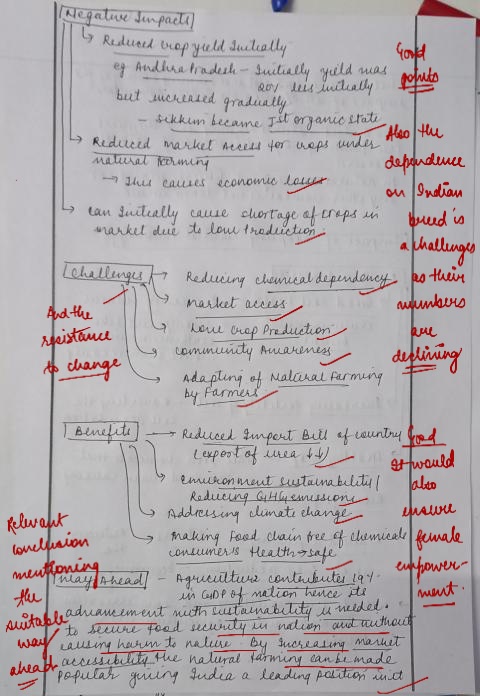 Negative Impacts
Reduced crop yield Initially
eg Andhra Pradesh - Initially yield was
20% less initially
but increased gradually
- Sikkim became Ist organic state
Reduced market Access for crops under
natural farming
→ This causes economic losses
can Initially cause shortage of crops in
market due to low Production.
Good
points
Also the
dependence
on Indian
breed is
a challenges
as their
numbers
are
declining
Challenges
Reducing chemical dependency
market access
Low Crop Production
Community Awareness
Adapting of Natural Farming
by Farmers
And the
resistance
to change
Benefits
Reduced Import Bill of country
(export of urea ↓↓)
environment sustainability/
Reducing GHG emissions
Addressing climate change
Making Food chain free of chemicals
consumer's Health → safe
Good
It would
also
ensure
female
empower-
ment.
Way Ahead - Agriculture contributes 19%
in GDP of nation hence its
advancement with sustainability is needed.
to secure food security in nation and without
causing harm to nature. By Increasing market
accessibility the natural farming can be made
popular giving India a leading position in it
Relevant
conclusion
mentioning
the
suitable
way
ahead